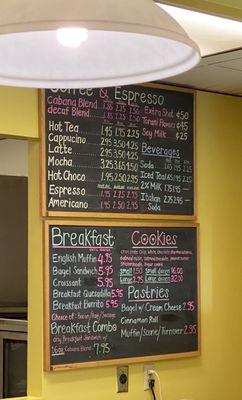 Coffee & Espresso
Cabana Blend 1.75 2.25
decaf Blend 1.75 2.25
Hot Tea 1.45 1.75 2.25
Cappucino 2.95 3.50 4.25
Latte 2.95 3.50 4.25
Mocha 3.25 3.65 4.50
Hot Choco 1.95 2.50 2.95
Espresso
Americano 1.75 2.50 2.95
Extra Shot
Torani Flavors
Soy Milk
Beverages
Soda
Iced Tea
2% Milk
Italian Soda
Breakfast
English Muffin 4.75
Bagel Sandwich 5.95
Croissant 5.95
Breakfast Quesadilla 5.95
Breakfast Burrito 5.95
Choice of Bacon/Ham/Sausage
Breakfast Combo
any Breakfast Sandwich w/
Cabana Blend 7.95
Cookies
Small Small dozen 16.00
Large Large dozen 32.00
Pastries
Bagel w/ Cream Cheese
Cinnamon Roll
Muffin/Scone/Turnover 2.95